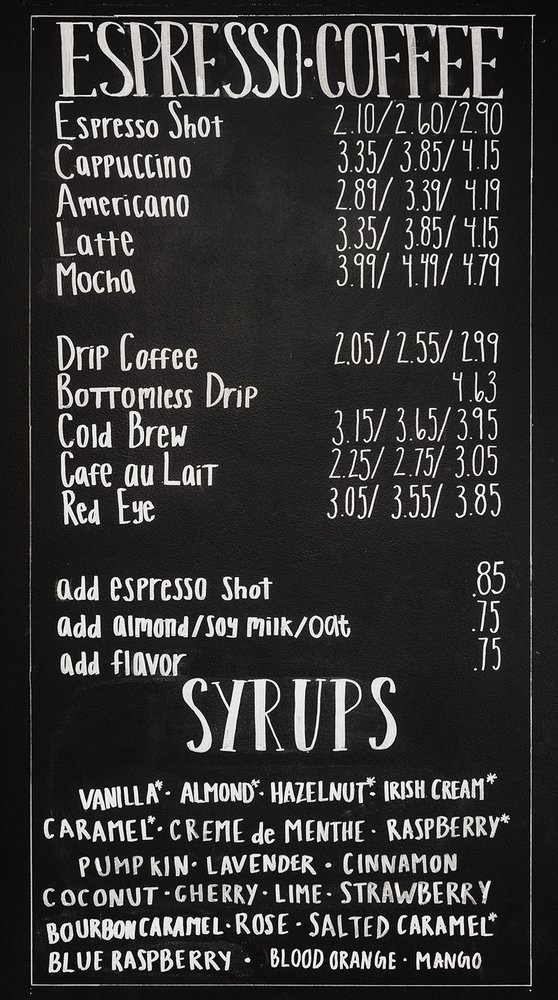 ESPRESSO·COFFEE
Espresso Shot 2.10/2.60/2.90
Cappuccino 3.35/ 3.85/ 4.15
Americano 2.89/ 3.39/ 4.19
Latte 3.35/ 3.85/ 4.15
Mocha 3.99/ 4.49/ 4.79
Drip Coffee 2.05/ 2.55/ 2.99
Bottomless Drip 4.63
Cold Brew 3.15/ 3.65/ 3.95
Cafe au Lait 2.25/ 2.75/ 3.05
Red Eye 3.05/ 3.55/ 3.85
add espresso shot .85
add almond/soy milk/oat .75
add flavor .75
SYRUPS
VANILLA*· ALMOND*· HAZELNUT*· IRISH CREAM*
CARAMEL*· CREME de MENTHE · RASPBERRY*
PUMPKIN· LAVENDER · CINNAMON
COCONUT · CHERRY · LIME · STRAWBERRY
BOURBON CARAMEL · ROSE · SALTED CARAMEL*
BLUE RASPBERRY · BLOOD ORANGE · MANGO